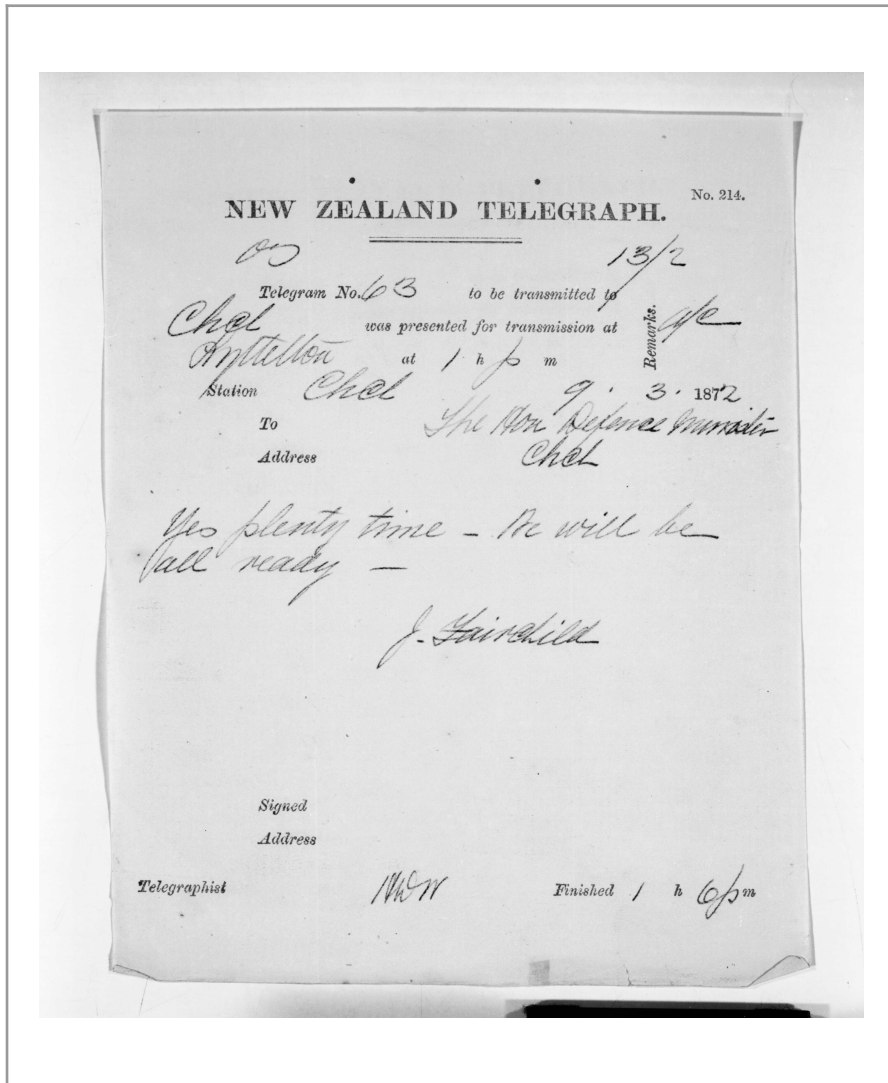 No. 214.
NEW ZEALAND TELEGRAPH.
13/2
Telegram No. 63 to be transmitted to
Chch was presented for transmission at
Remarks.
Lyttelton at 1 h p m
Station Chch 9. 3. 1872
To The Hon Defence Minister
Address Chch
Yes plenty time – We will be
all ready –
J. Fairchild
Signed
Address
Telegraphist Finished 1 h 6 p m